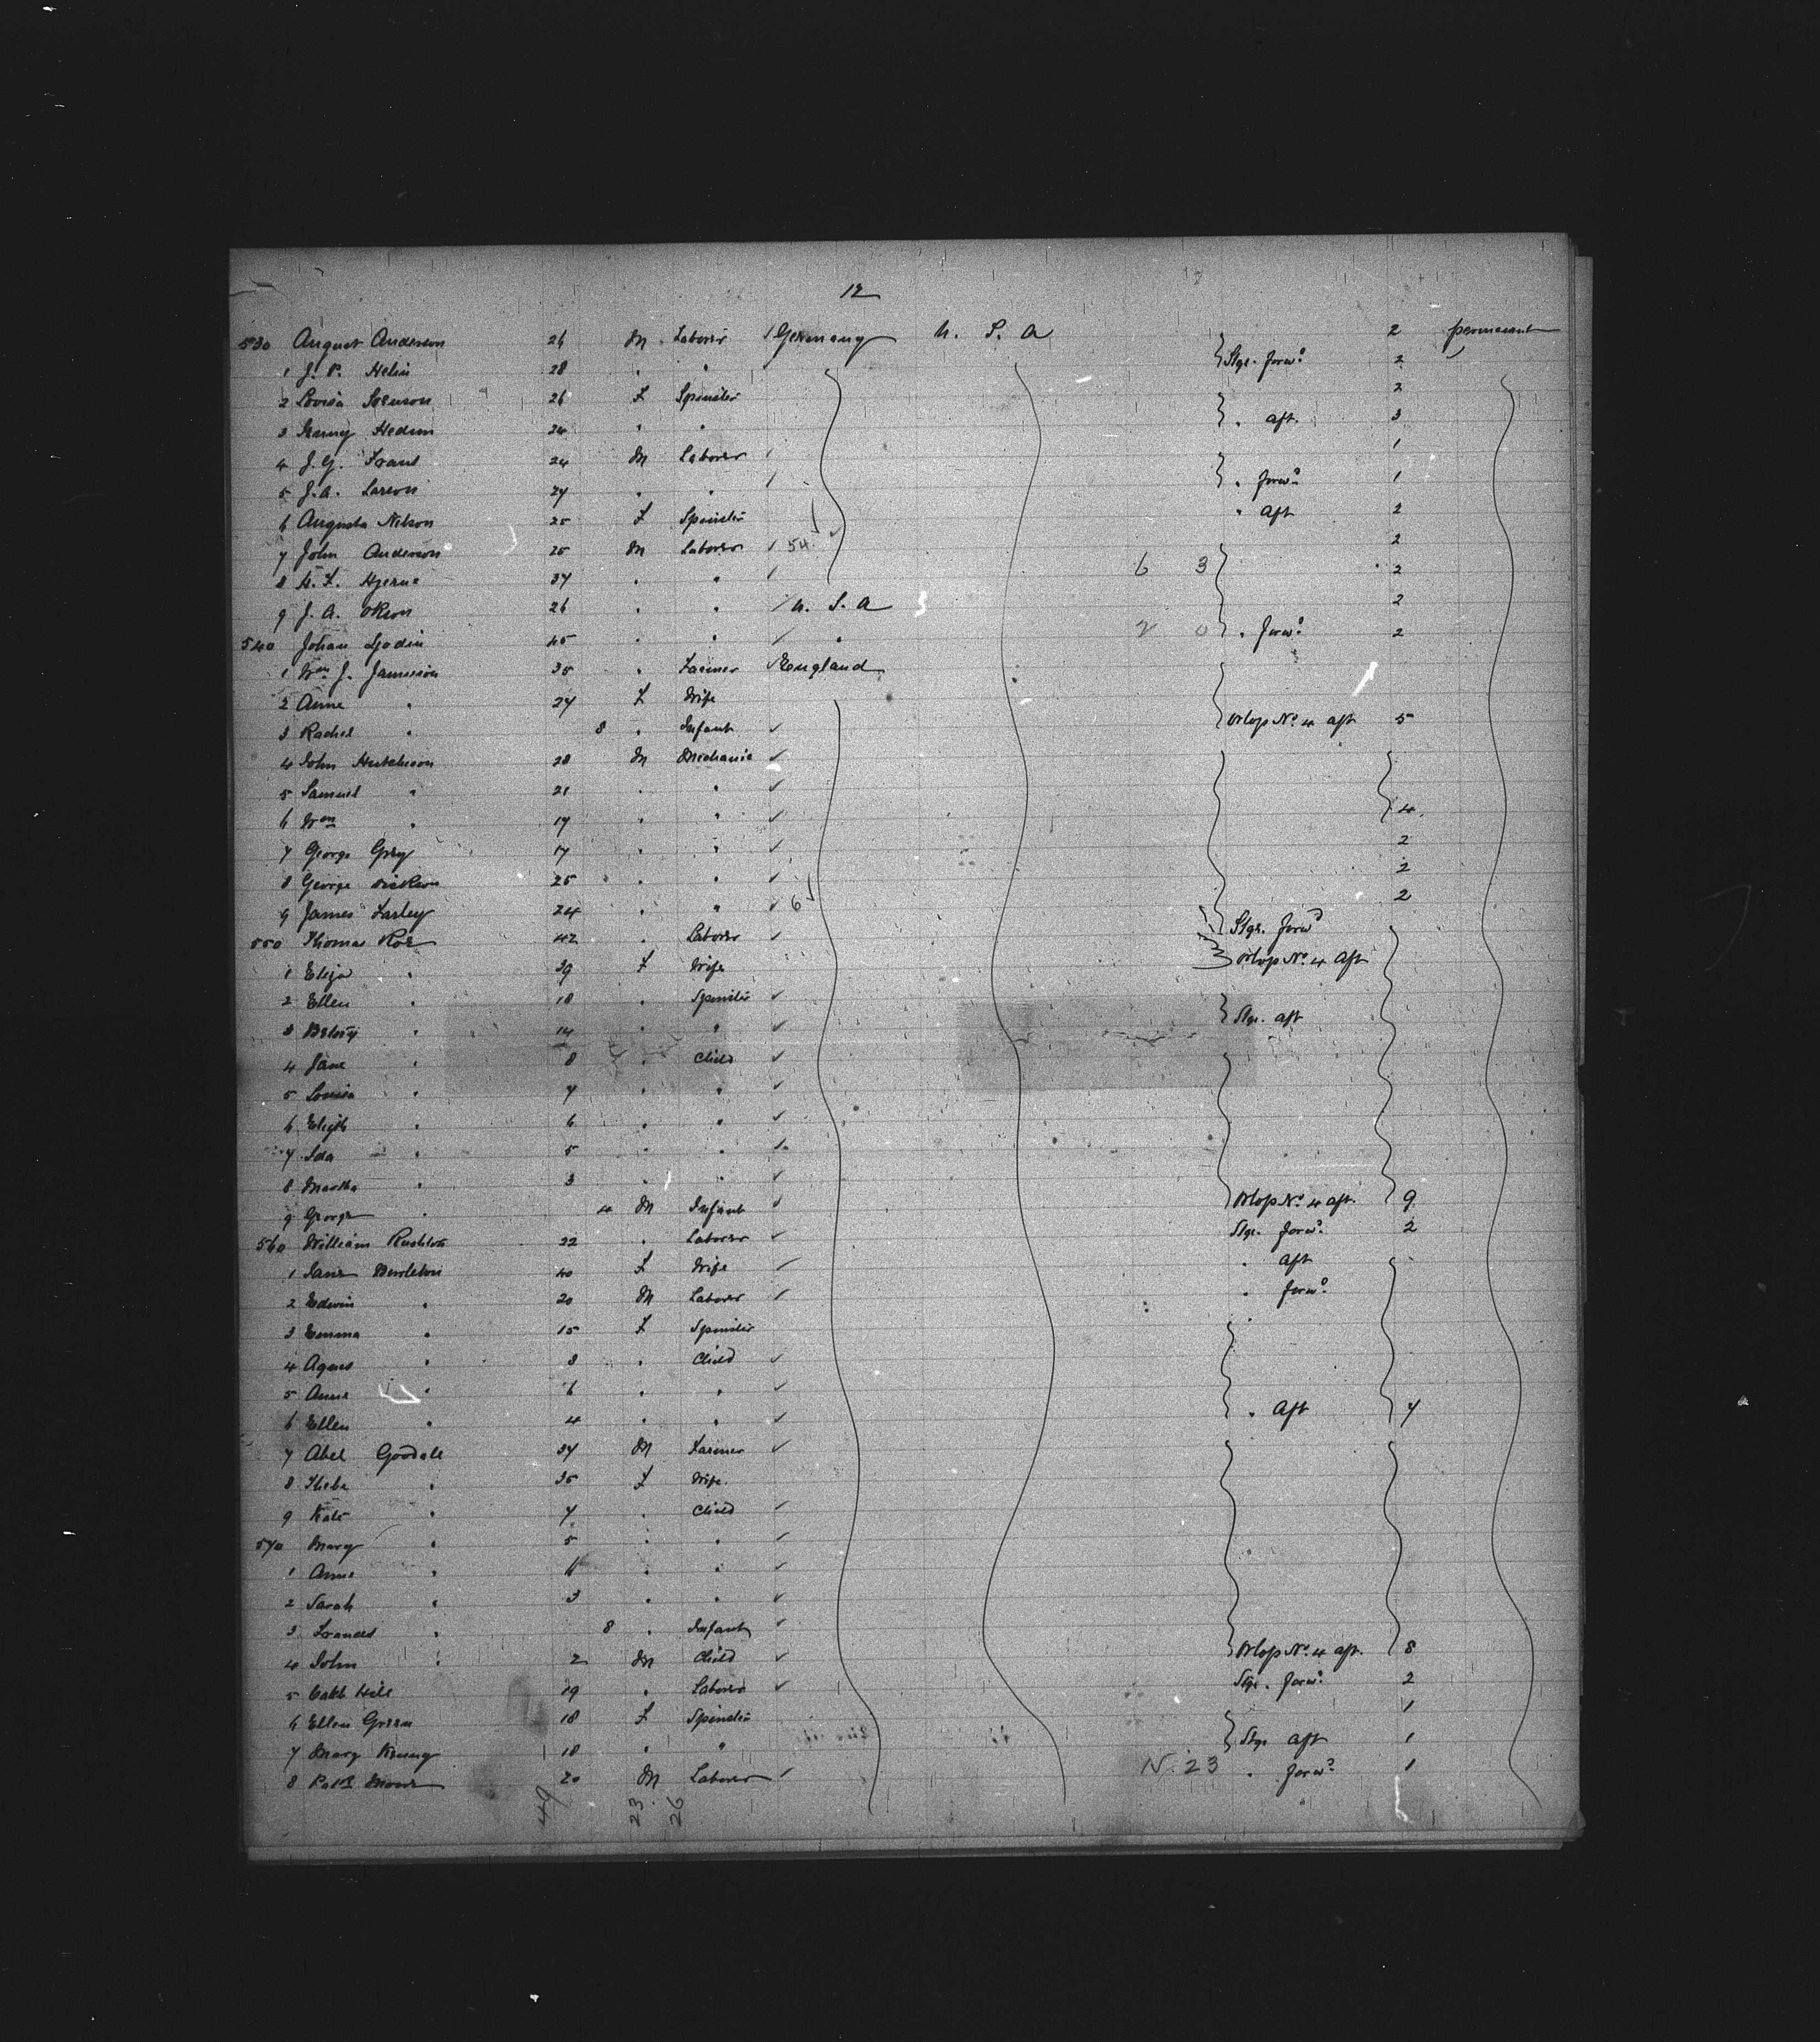 12
530 August Anderson 26 M Laborer Germany U. S. A 2 permanent
1 J. P. Helin 28 " " Stge. forwd 2
2 Lovisa Sorenson 26 F Spinster 2
3 Hedun 24 " " " aft. 3
4 J. G. Frant 24 M Laborer 1
5 J. A. Larson 27 " " " forwd 1
6 Augusta Nilson 25 F Spinster " aft 2
7 John Anderson 25 M Laborer 54 2
8 37 " " 6 3 2
9 J. A. Okson 26 " " U. S. A 2
540 Johan Sjodin 45 " " " 2 0 " forwd 2
1 Wm J. Jamieson 35 " Farmer England
2 Anne " 27 F Wife
3 Rachel " 8 " Infant Orlop No. 4 aft 5
4 John Hutchison 28 M Mechanic
5 Samuel " 21 " "
6 Wm " 17 " " 4
7 George Grey 17 " " 2
8 George Dickson 25 " " 2
9 James Farley 24 " " 6 2
550 Thomas Roe 42 " Laborer Stge. forwd
1 Eliza " 39 F Wife Orlop No. 4 aft
2 Ellen " 18 " Spinster
3 Betsy " 14 " " Stge. aft
4 Jane " 8 " Child
5 Louisa " 7 " "
6 Elizth " 6 " "
7 Ida " 5 " "
8 Martha " 3 " "
9 George " 4 M Infant Orlop No. 4 aft. 9
560 William Rushton 22 " Laborer Stge. forwd 2
1 Jane 40 F Wife " aft
2 Edwin " 20 M Laborer " forwd
3 Emma " 15 F Spinster
4 Agnes " 8 " Child
5 Anne " 6 " "
6 Ellen " 4 " " " aft 7
7 Abel Goodale 34 M Farmer
8 " 35 F Wife
9 Kate " 7 " Child
570 Mary " 5 " "
1 Anne " " "
2 Sarah " 3 " "
3 Frances " 8 " Infant
4 John " 2 M Child Orlop No. 4 aft. 8
5 Caleb Hill 19 " Laborer Stge. forwd 2
6 Ellen Green 18 F Spinster 1
7 Mary 18 " " Stge aft 1
8 Patk Moore 20 M Laborer N. 23 " forwd 1
49 23 26